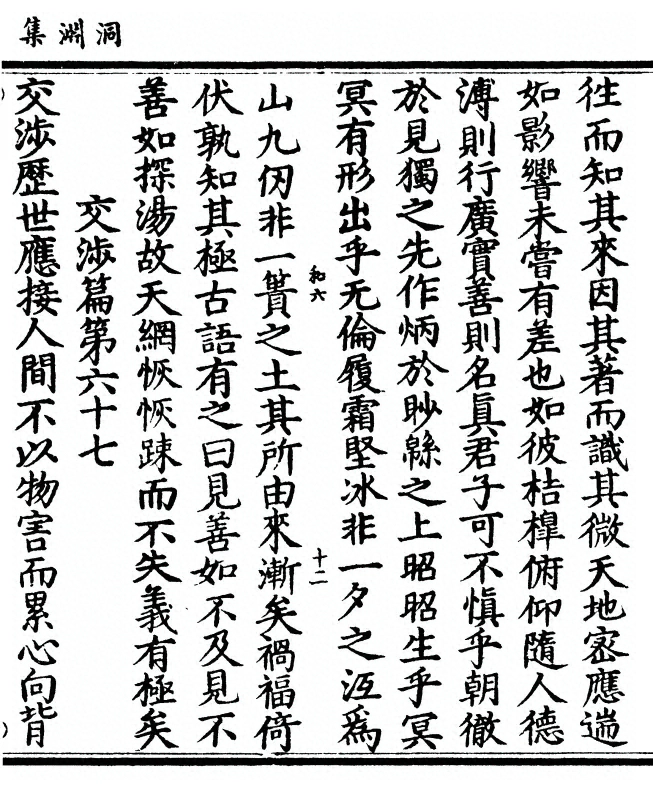 洞淵集
徃而知其來因其著而識其微天地密應遄
如影響未嘗有差也如彼桔槹俯仰隨人德
溥則行廣實善則名眞君子可不慎乎朝徹
於見獨之先作炳於眇緜之上昭昭生乎冥
冥有形出乎无倫履霜堅冰非一夕之沍爲
和六
十二
山九仞非一蕢之土其所由來漸矣禍福倚
伏孰知其極古語有之曰見善如不及見不
善如探湯故天網恢恢踈而不失義有極矣
交涉篇第六十七
交涉歷世應接人間不以物害而累心向背